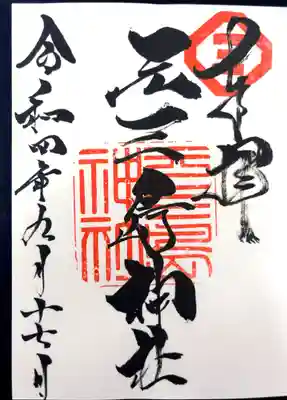 奉拝
元三島神社
令和四年九月十七日